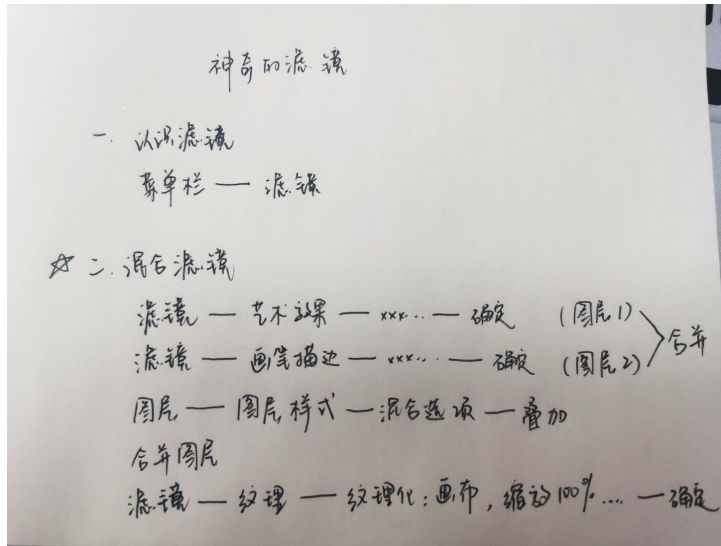 神奇的滤镜
一. 认识滤镜
菜单栏 — 滤镜
☆ 二. 混合滤镜
滤镜 — 艺术效果 — xxx... — 确定 (图层1)
滤镜 — 画笔描边 — xxx... — 确定 (图层2) 合并
图层 — 图层样式 — 混合选项 — 叠加
合并图层
滤镜 — 纹理 — 纹理化：画布，缩放100%.... — 确定